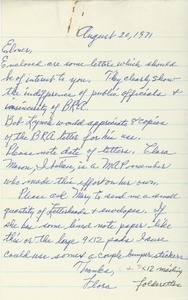 August 20, 1971
Elmer,
Enclosed are some letters which should
be of interest to you. They clearly show
the indifference of public officials &
insincerity of BRA.
Bob Lynch would appreciate copies
of the BRA letter for his use.
Please note date of letters. Clara
Mason, I believe, is a MAP member
who made this effort on her own.
Please ask Mary to send me a small
quantity of letterheads & envelopes. If
she has some lined note paper like
this or the large 9x12 pads I could
use some & a couple bumper stickers
Thanks, & 9x12 mailing
Flora folders